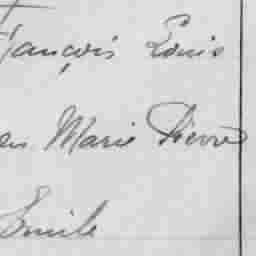 François Louis
en Marie Pierre
Emile